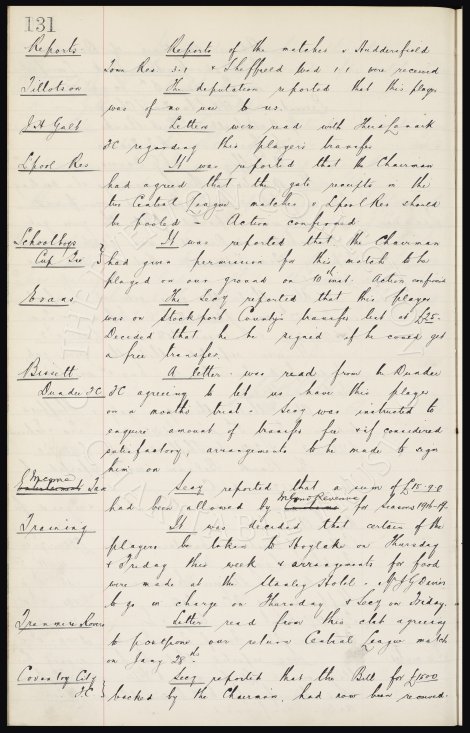 131
Reports Reports of the matches v Hudderefield
Town Res 3.1 & Sheffield Wed 1.1 were received
Tillotson The deputation reported that this player
was of no use to us.
J.A Galt Letters were read with Third Lanark
FC regarding this player's transfer
Lpool Res It was reported that the Chairman
had agreed that the gate receipts in the
two Central League matches v Lpool Res should
be pooled - Action confirmed
Schoolboys It was reported that the Chairman
Cup Tie had given permission for this match to be
played on our ground on 10th inst. Action confirmed
Evans The Secy reported that this player
was on Stockport County's transfer list at £25.
Decided that he be signed if he could get
a free transfer.
Bissett A letter was read from the Dundee
Dundee FC FC agreeing to let us have this player
on a months trial. Secy was instructed to
enquire amount of transfer fee & if considered
satisfactory, arrangements to be made to sign
him on
Income
Entertainment Tax Secy reported that a sum of
Inland Revenue
had been allowed by Customs for Seasons
Training It was decided that certain of the
players be taken to Hoylake on Thursday
& Friday this week & arrangements for food
were made at the Stanley Hotel. Mr J G Davies
to go in charge on Thursday & Secy on Friday.
Tranmere Rovers Letter read from this club agreeing
to postpone our return Central League match
on Jany 28th
Coventry City Secy reported that the Bill for £1000
FC backed by the Chairman, had now been received.